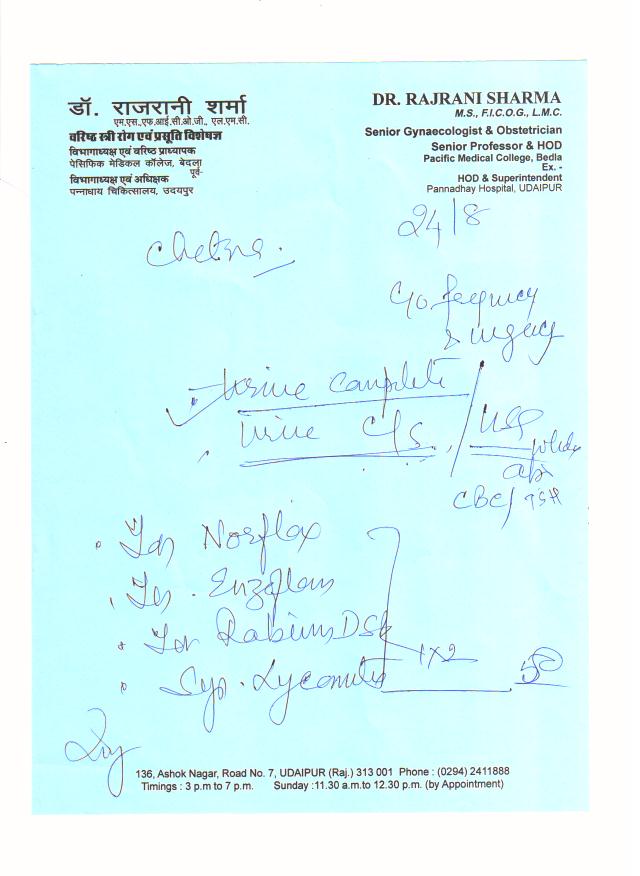 डॉ. राजरानी शर्मा
एम.एस.,एफ.आई.सी.ओ.जी., एल.एम.सी.
वरिष्ठ स्त्री रोग एवं प्रसूति विशेषज्ञ
विभागाध्यक्ष एवं वरिष्ठ प्राध्यापक
पेसिफिक मेडिकल कॉलेज, बेदला
पूर्व-
विभागाध्यक्ष एवं अधिक्षक
पन्नाधाय चिकित्सालय, उदयपुर
DR. RAJRANI SHARMA
M.S., F.I.C.O.G., L.M.C.
Senior Gynaecologist & Obstetrician
Senior Professor & HOD
Pacific Medical College, Bedla
Ex. -
HOD & Superintendent
Pannadhay Hospital, UDAIPUR
24/8
Chetna.
C/o. frequency
& urgency
Urine Complete
Urine C/S. / USG
whole
abd
CBC/ TSH
Norflox
Enzoflam
Rabium DSR
1x2
Syp.
136, Ashok Nagar, Road No. 7, UDAIPUR (Raj.) 313 001 Phone : (0294) 2411888
Timings : 3 p.m to 7 p.m. Sunday :11.30 a.m.to 12.30 p.m. (by Appointment)